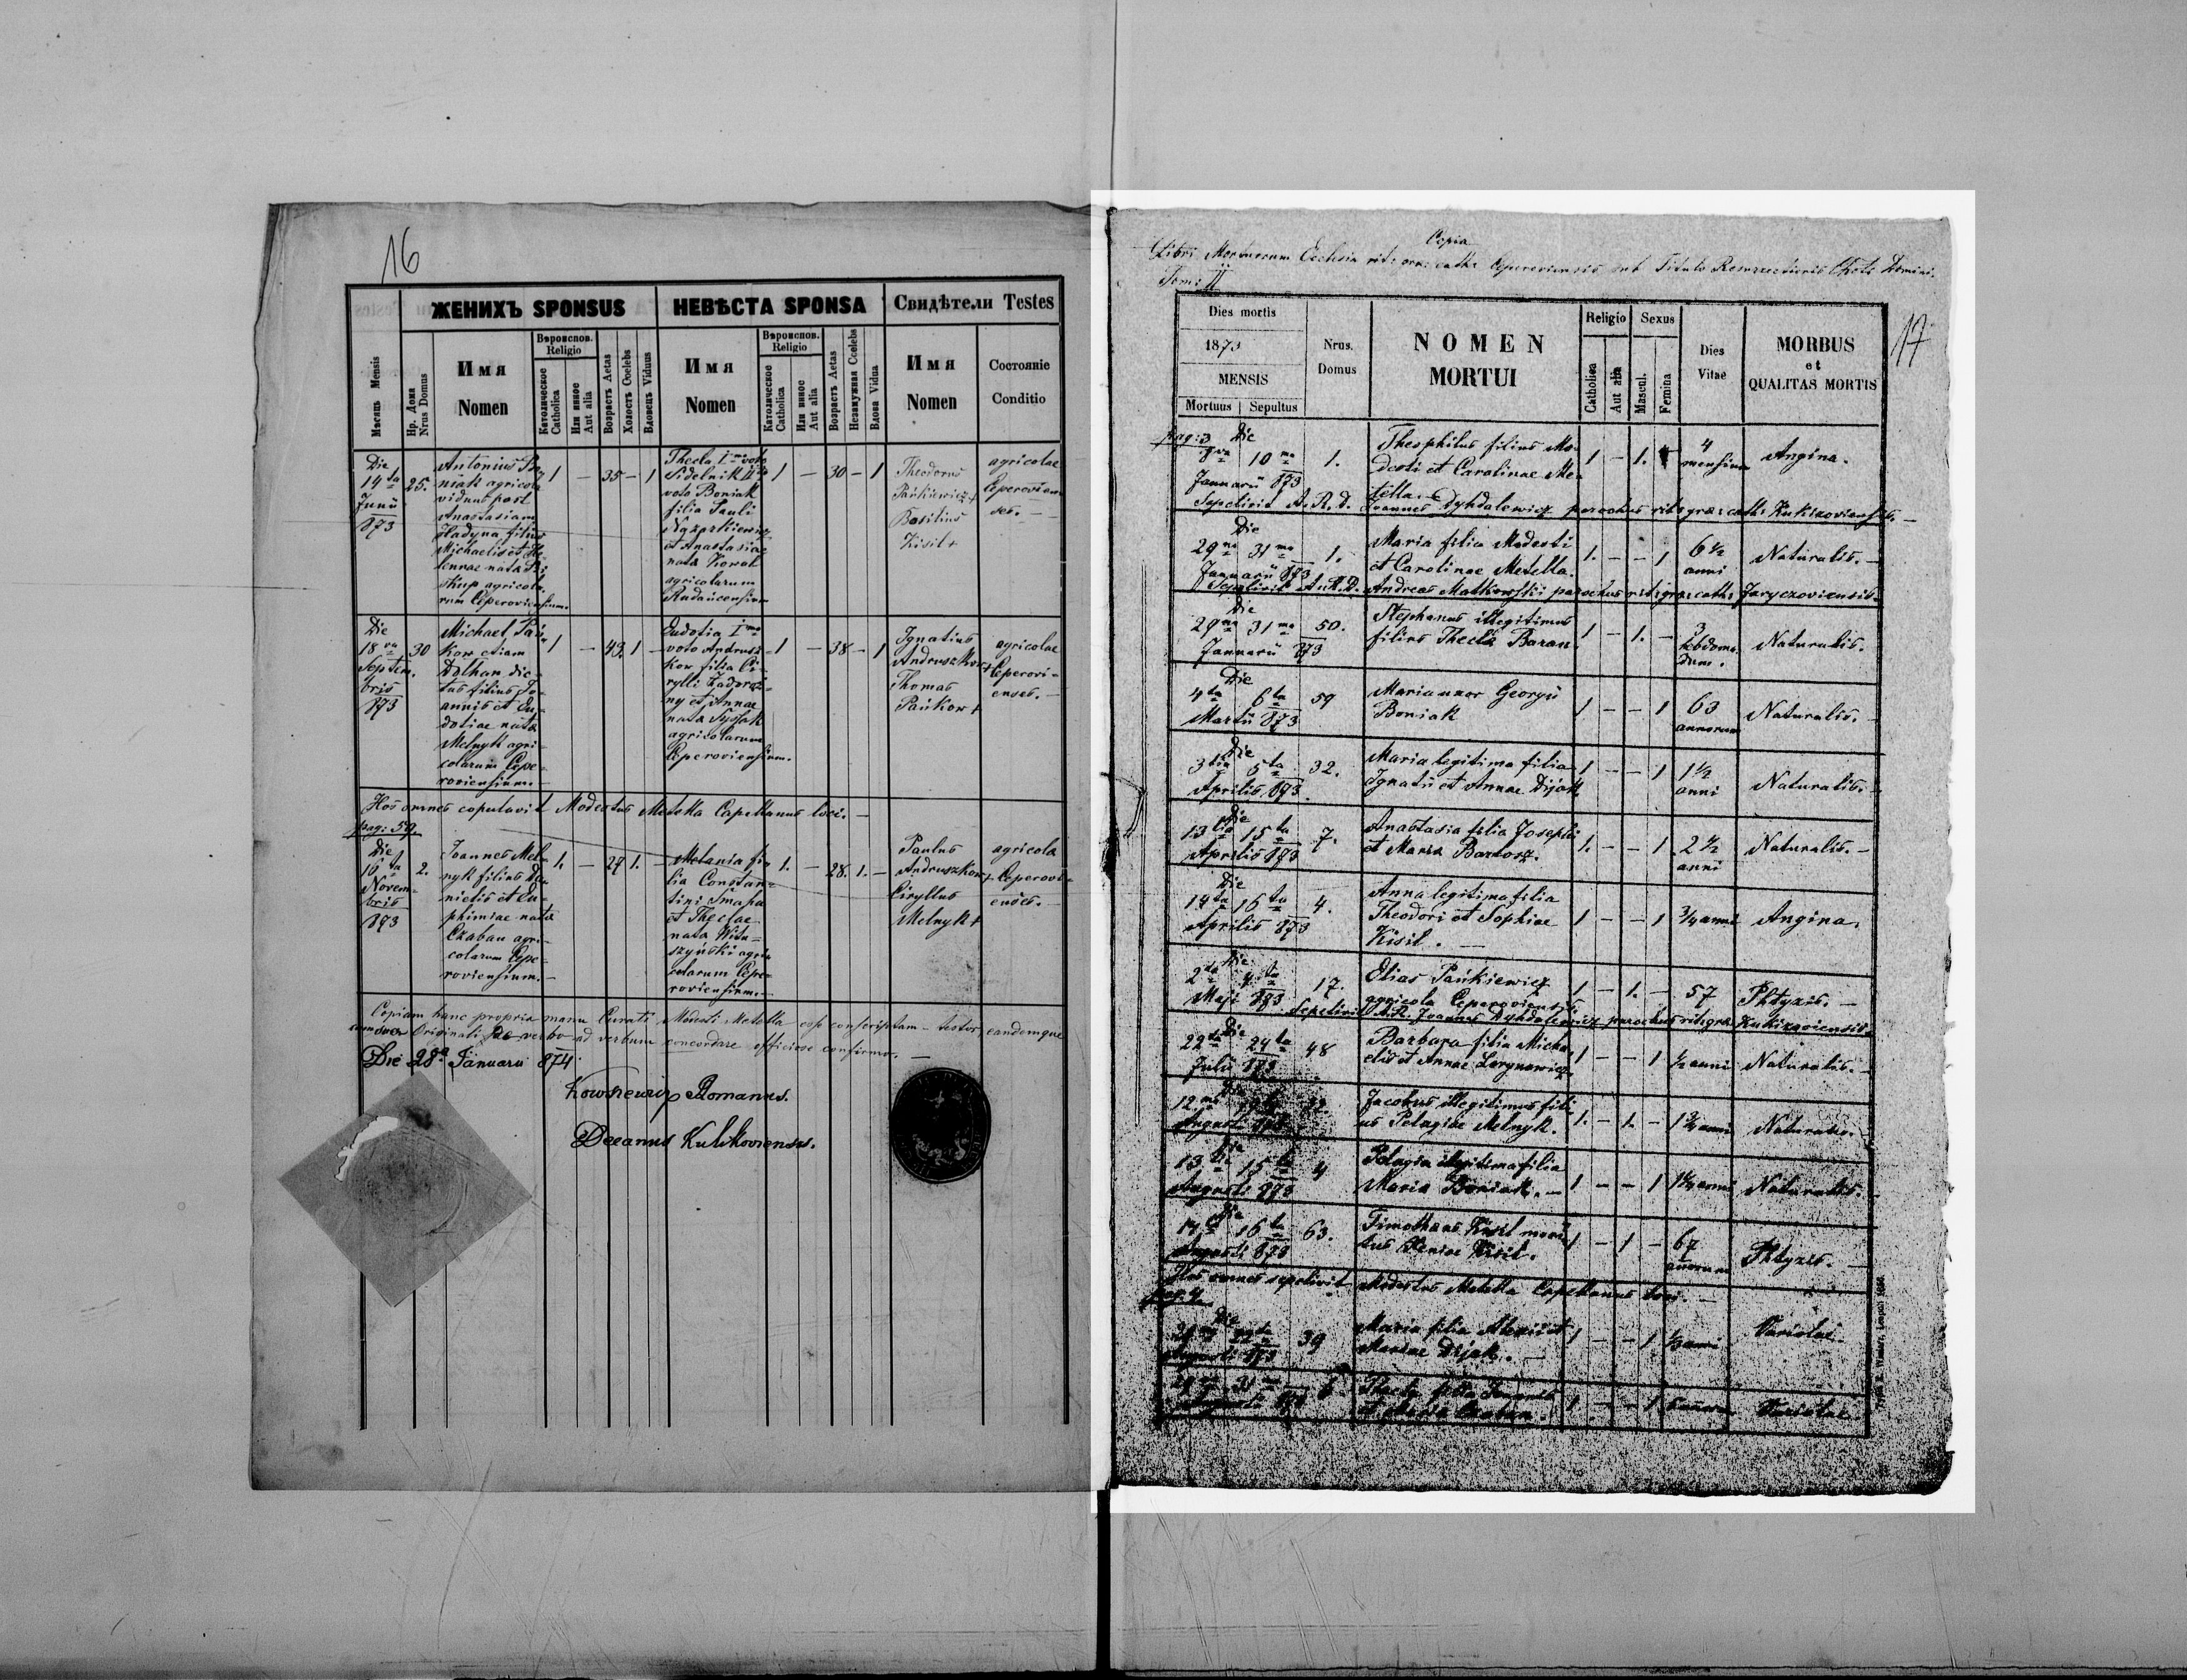 16
ЖЕНИХЪ SPONSUS
НЕВѢСТА SPONSA
Свидѣтели Testes
Мѣсяць Mensis
Нр. Дома Nrus Domus
Имя Nomen
Вѣроиспов. Religio
Католическое Catholica
Или иное Aut alia
Возрастъ Aetas
Холостъ Coelebs
Вдовець Viduus
Имя Nomen
Вѣроиспов. Religio
Католическое Catholica
Или иное Aut alia
Возрастъ Aetas
Незамужная Coelebs
Вдова Vidua
Имя Nomen
Состояніе Conditio
Die
14 ta
Junii
873
25.
Antonius
agricola
viduus post
Anastasiam
Hadyna filius
Michaelis et He-
lenae nata Bi-
skup agricola-
rum Ceperoviensium.
1 — 35 — 1
Thecla I mo voto
Sidelnik II do
voto Boniak
filia Pauli
Nazarkiewicz
et Anastasiae
nata Kowal
agricolarum
Rudancensium
1 — 30 — 1
Theodorus
Pańkiewicz +
Basilius
Kisil +
agricolae
Ceperovien-
ses. —
Die
18 va
Septem-
bris
873
30
Michael Pań-
kow etiam
Dolhan dic-
tus filius Jo-
annis et Eu-
dotiae nata
Melnyk agri-
colarum Cepe-
roviensium. —
1 — 43. 1 —
Eudotia I mo
voto Andrusz-
kow filia Ci-
rylli Zadoroż-
ny et Annae
nata
agricolarum
Ceperoviensium.
1 — 38 — 1
Ignatius
Andruszkow +
Thomas
Pańkow +
agricolae
Ceperovi-
enses. —
Hos omnes copulavit Modestus Metella Capellanus loci. —
pag: 59.
Die
16 ta
Novem-
bris
873
2.
Joannes Mel-
nyk filius Da-
nielis et Eu-
phimiae nata
Czaban agri-
colarum Cepe-
roviensium. —
1. — 27 1. —
Melania fi-
lia Constan-
tini Smaha
et Theclae
nata Witu-
szyński agri-
colarum Cepe-
roviensium. —
1. — 28. 1. —
Paulus
Andruszkow +
Ciryllus
Melnyk +
agricolae
Ceperovi-
enses. —
Copiam hanc propria manu Curati Modesti Metella esse conscriptam — testor, eandemque
cum Originali de verbo ad verbum concordare officiose confirmo. —
Die 28a Januarii 874
Romanus.
Decanus Kulikoviensis.
Copia
Libri Mortuorum Ecclesia rit: gra: cath: Ceperoviensis sub Titulo Resurrectionis Christi Domini.
Tom: II
17
Dies mortis
1873
MENSIS
Mortuus | Sepultus
Nrus. Domus
NOMEN MORTUI
Religio
Catholica
Aut alia
Sexus
Mascul.
Femina
Dies Vitae
MORBUS
et
QUALITAS MORTIS
pag: 3
Die
8va 10 ma
Januarii 873
1.
Theophilus filius Mo-
desti et Carolinae Me-
tella. —
1 — 1.
4 mensium
Angina.
Sepelivit A. R. D. Joannes Dyhdalewicz parochus rit: gra: cath: Kukizoviensis. —
Die
29 na 31 ma
Januarii 873
1.
Maria filia Modesti
et Carolinae Metella.
1. — — 1
6 1/2 anni
Naturalis. —
Sepelivit A. R. D. Andreas Małkowski parochus rit: gra: cath: Jaryczoviensis.
Die
29 na 31 ma
Januarii 873
50.
Stephanus illegitimus
filius Thecla Baran
1 — 1. —
3 hebdoma-
dum.
Naturalis.
Die
4 ta 6 ta
Martii 873
59
Maria uxor Georgii
Boniak
1 — — 1
63
annorum
Naturalis. —
Die
3 tia 5 ta
Aprilis 873.
32.
Maria legitima filia
Ignatii et Annae Dijak
1 — — 1
1 1/2
anni
Naturalis. —
Die
13 tia 15 ta
Aprilis 873
7.
Anastasia filia Josephi
et Maria Bartosz.
1. — — 1
2 1/2
anni
Naturalis. —
Die
14 ta 16 ta
Aprilis 873
4.
Anna legitima filia
Theodori et Sophiae
Kisil. —
1 — — 1
3/4 anni
Angina.
Die
2 da 4 ta
Maji 873
17.
Elias Pańkiewicz
agricola Ceperoviensis.
1 — 1. —
57
Phtyzis. —
Sepelivit A. R. Joannes Dyhdalewicz parochus rit: gra: Kukizoviensis.
Die
22 da 24 ta
Julii 873
48
Barbara filia Micha-
elis et Annae
1 — — 1
1/2 anni
Naturalis. —
Die
12 ma
Augusti 873
Jacobus illegitimus fili-
us Pelagiae Melnyk.
1. — 1. —
anni
Naturalis. —
Die
13 tia 15 ta
Augusti 873
4
Pelagia illegitima filia
Maria Boniak. —
1 — — 1
anni
Naturalis. —
Die
14 ta 16 ta
Augusti 873
63.
Timotheus Kisil mari-
tus Xeniae Kisil.
1 — 1 —
67
annorum
Phtyzis. —
Hos omnes sepelivit Modestus Metella Capellanus loci. —
pag: 4
Die
Augusti 873
39
Maria filia Alexii et
Mariae Dijak. —
1 — — 1
1/2 anni
Variolae.
Augusti 873
6
Thecla filia
et Maria
1 — — 1
Variolae